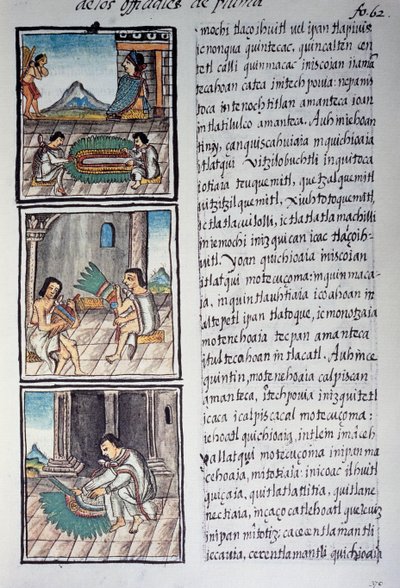 de los officiales de pluma
fo. 62.
mochi tlaçoihuitl vel ipan tlapiuix
icnonqua quintecac, quincalten cen
tetl calli quinmacac iniscoian iiama
tecahoan catca initech pouia: nepanis
toca intenochtitlan amanteca ioan
in tlatilulco amanteca. Auh iniehoan
tin, çan quiscahuiaia inquichioaia
itlatqui Vitzilobuchtli inquitoca
iotiaia teuquemitl, quetzalquemitl
vitzitzilquemitl, Xiuhtotoquemitl,
ictlatlacuilolli, ictlatlatlamachilli
in ie mochi iniz qui can icac tlaçoih-
uitl. Yoan quichioaia iniscoian
itlatqui motecuçoma: inquinmaca-
ia, inquintlauhtiaia icoahoan in
altepetl ipan tlatoque, ic monotzaia
motenehoaia tecpan amanteca
itultecahoan in tlacatl. Auh in ce
quintin, motenehoaia calpiscan
amanteca, itech pouia inizquitetl
icaca icalpiscacal motecuçoma:
iehoatl quichioaia, in tlein imaceh
uallatqui motecuçoma inipan ma
cehoaia, mitotiaia: inicoac ilhuitl
quiçaia, quitlatlattitia, quitlane
nectiaia, in caço catlehoatl quicuiz
inipan mitotiz: ca cecentlamantli
iecauia, cecentlamantli quichioaia